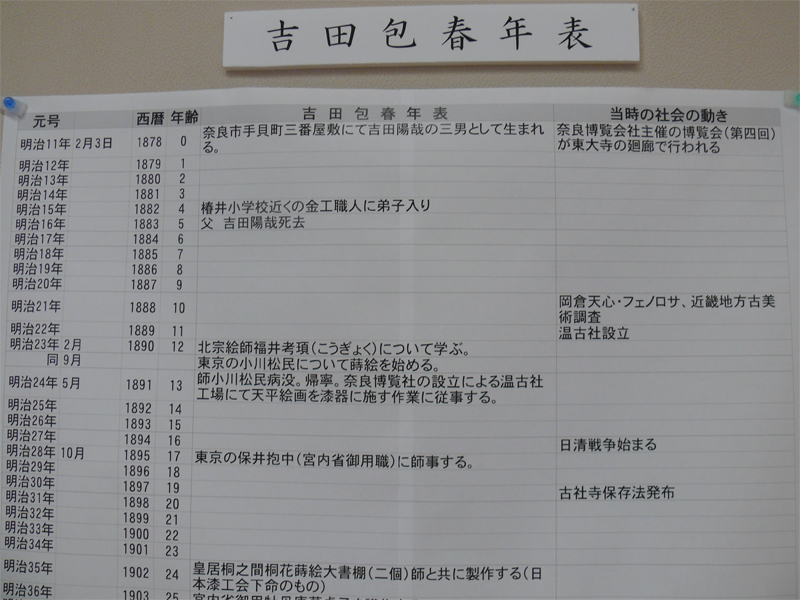 吉田包春年表
元号 西暦 年齢 吉田包春年表 当時の社会の動き
明治11年 2月3日 1878 0 奈良市手貝町三番屋敷にて吉田陽哉の三男として生まれ 奈良博覧会社主催の博覧会(第四回)
る。 が東大寺の廻廊で行われる
明治12年 1879 1
明治13年 1880 2
明治14年 1881 3
明治15年 1882 4 椿井小学校近くの金工職人に弟子入り
明治16年 1883 5 父 吉田陽哉死去
明治17年 1884 6
明治18年 1885 7
明治19年 1886 8
明治20年 1887 9
明治21年 1888 10 岡倉天心・フェノロサ、近畿地方古美
術調査
明治22年 1889 11 温古社設立
明治23年 2月 1890 12 北宗絵師福井考頊(こうぎょく)について学ぶ。
同 9月 東京の小川松民について蒔絵を始める。
明治24年 5月 1891 13 師小川松民病没。帰寧。奈良博覧社の設立による温古社
工場にて天平絵画を漆器に施す作業に従事する。
明治25年 1892 14
明治26年 1893 15
明治27年 1894 16 日清戦争始まる
明治28年 10月 1895 17 東京の保井抱中(宮内省御用職)に師事する。
明治29年 1896 18
明治30年 1897 19 古社寺保存法発布
明治31年 1898 20
明治32年 1899 21
明治33年 1900 22
明治34年 1901 23
明治35年 1902 24 皇居桐之間桐花蒔絵大書棚(二個)師と共に製作する(日
本漆工会下命のもの)
明治36年 1903 25